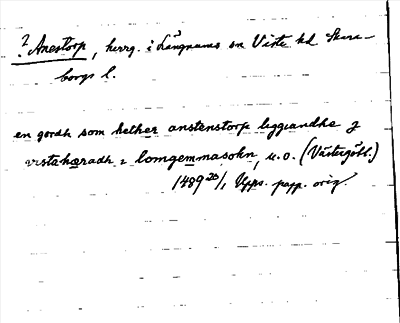 ? Anestorp, herrg. i Längnums sn Viste hd Skara-
borgs l.
en gordh som hether anstenstorp liggiandhe j
vistahæradh i longemmasokn, u.o. (Västergötl.)
1489 20/1 Upps. papp. orig.